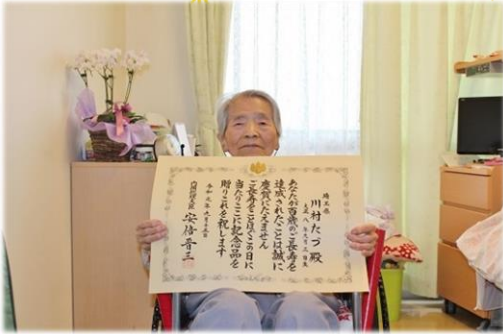 埼玉県
川村たづ殿
大正八年九月三日生
あなたが百歳のご長寿を
達成されたことは誠に
慶賀にたえません
ご長寿をことほぐこの日に
当たりここに記念品を
贈りこれを祝します
令和元年九月十五日
内閣総理大臣 安倍晋三